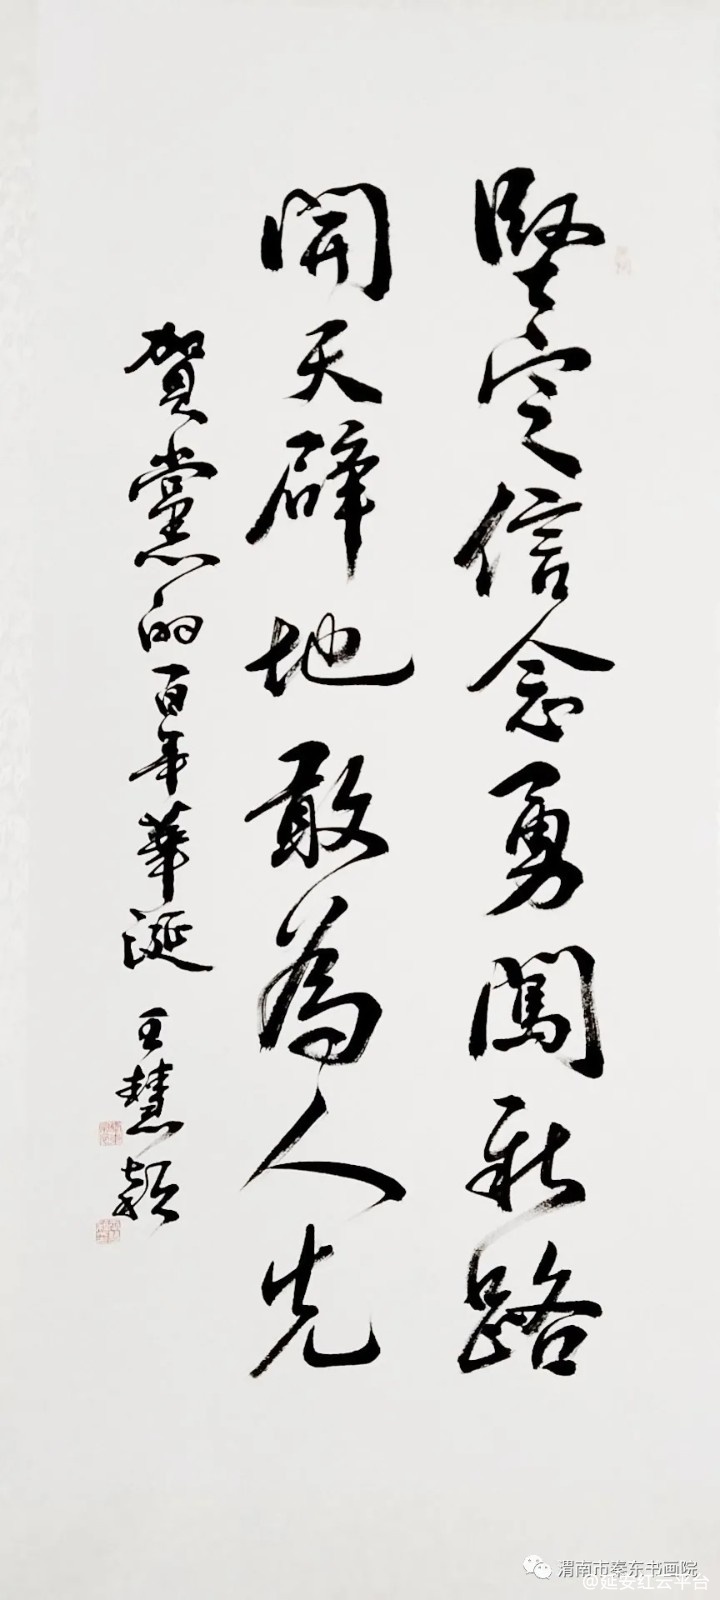 堅定信念勇闖新路
開天辟地敢為人先
賀黨的百年華誕 王慧穎
渭南市奉东书画院
@延安红云平台